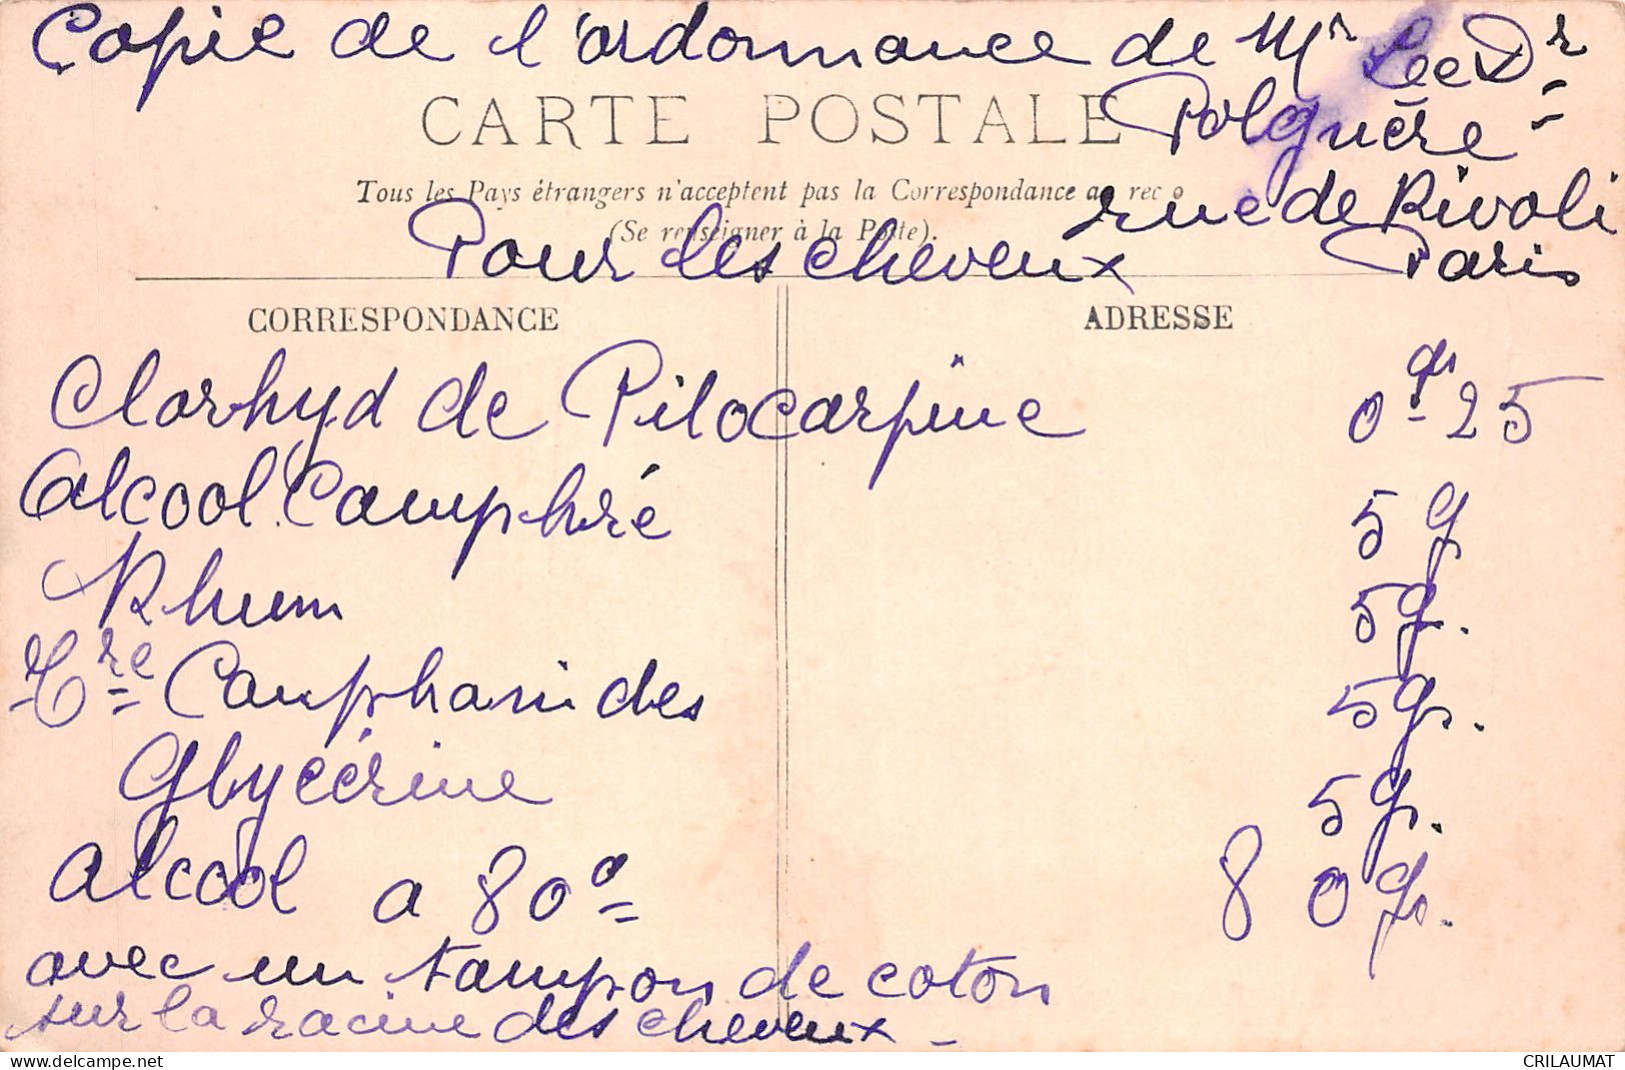 Copie de l'ordonnance de Mr Le Dr
CARTE POSTALE
Polguère
Tous les Pays étrangers n'acceptent pas la Correspondance au rec o
rue de Rivoli
(Se renseigner à la Poste).
Pour les cheveux Paris
CORRESPONDANCE ADRESSE
Clorhyd de Pilocarpine 0gr 25
Alcool Camphré 5 g
Rhum 5 g.
Tre Camphanides 5 gr.
Glycérine 5 gr.
Alcool a 80° 80 gr.
avec un tampon de coton
sur la racine des cheveux -
www.delcampe.net CRILAUMAT